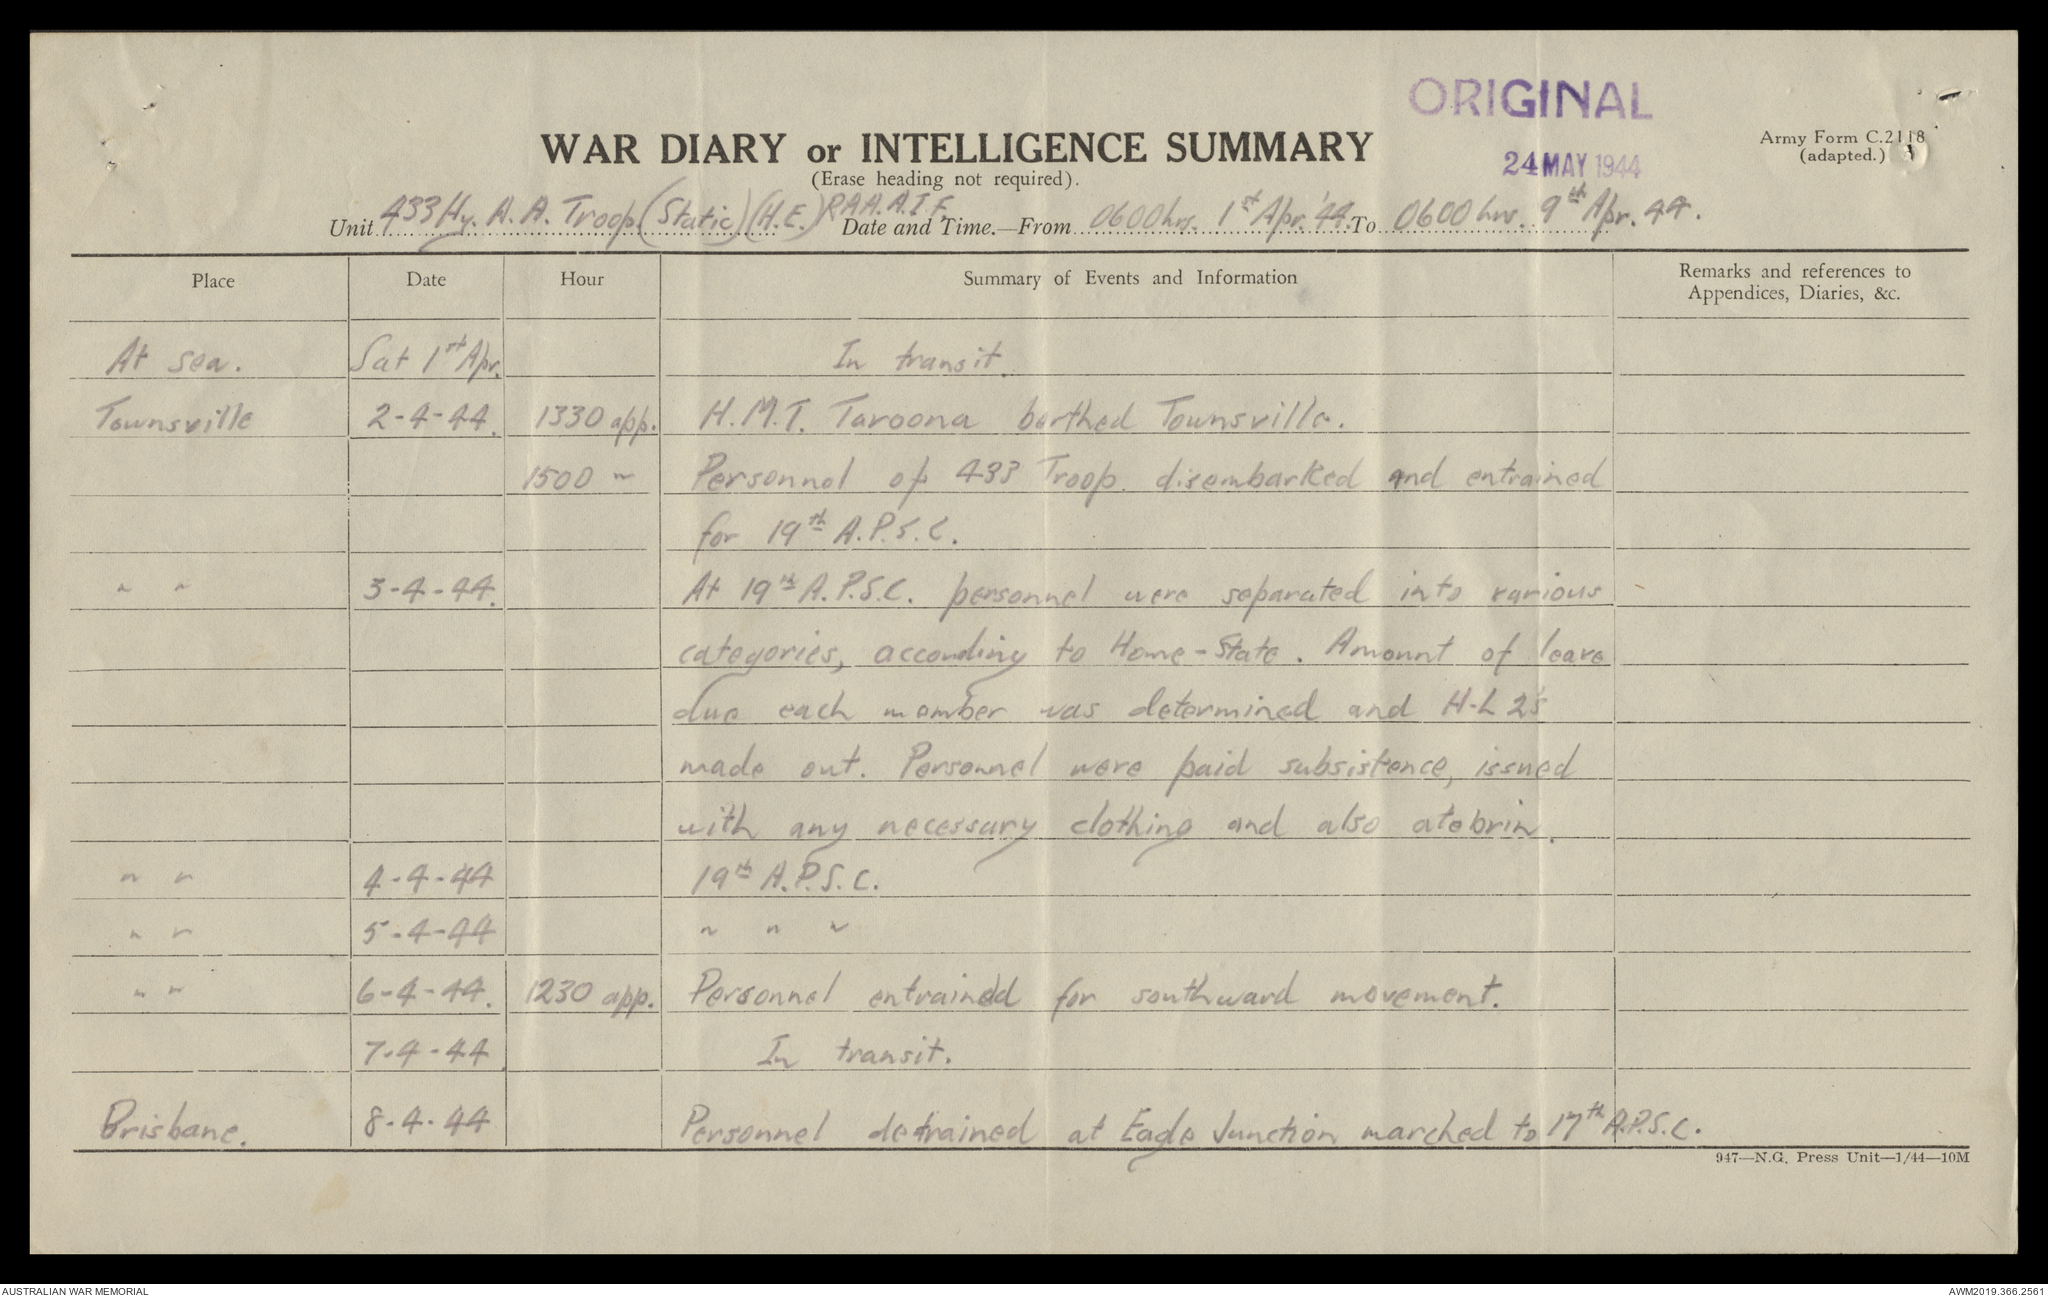 ORIGINAL
24 MAY 1944
Army Form C.2118
(adapted.)
WAR DIARY or INTELLIGENCE SUMMARY
(Erase heading not required).
Unit 433 Hy. A. A. Troop (Static) (H.E.) RAA. A.I.F. Date and Time.—From 0600 hrs. 1st Apr. '44. To 0600 hrs. 9th Apr. 44.
Place Date Hour Summary of Events and Information Remarks and references to
Appendices, Diaries, &c.
At sea. Sat 1st Apr. In transit.
Townsville 2-4-44. 1330 app. H.M.T. Taroona berthed Townsville.
1500 " Personnel of 433 Troop. disembarked and entrained
for 19th A.P.S.C.
" " 3-4-44. At 19th A.P.S.C. personnel were separated into various
categories, according to Home-State. Amount of leave
due each member was determined and H-L 2's
made out. Personnel were paid subsistence, issued
with any necessary clothing and also atebrin.
" " 4-4-44 19th A.P.S.C.
" " 5-4-44 " " "
" " 6-4-44. 1230 app. Personnel entrained for southward movement.
7-4-44 In transit.
Brisbane. 8-4-44 Personnel detrained at Eagle Junction marched to 17th A.P.S.C.
947—N.G. Press Unit—1/44—10M
AUSTRALIAN WAR MEMORIAL
AWM2019.366.2561